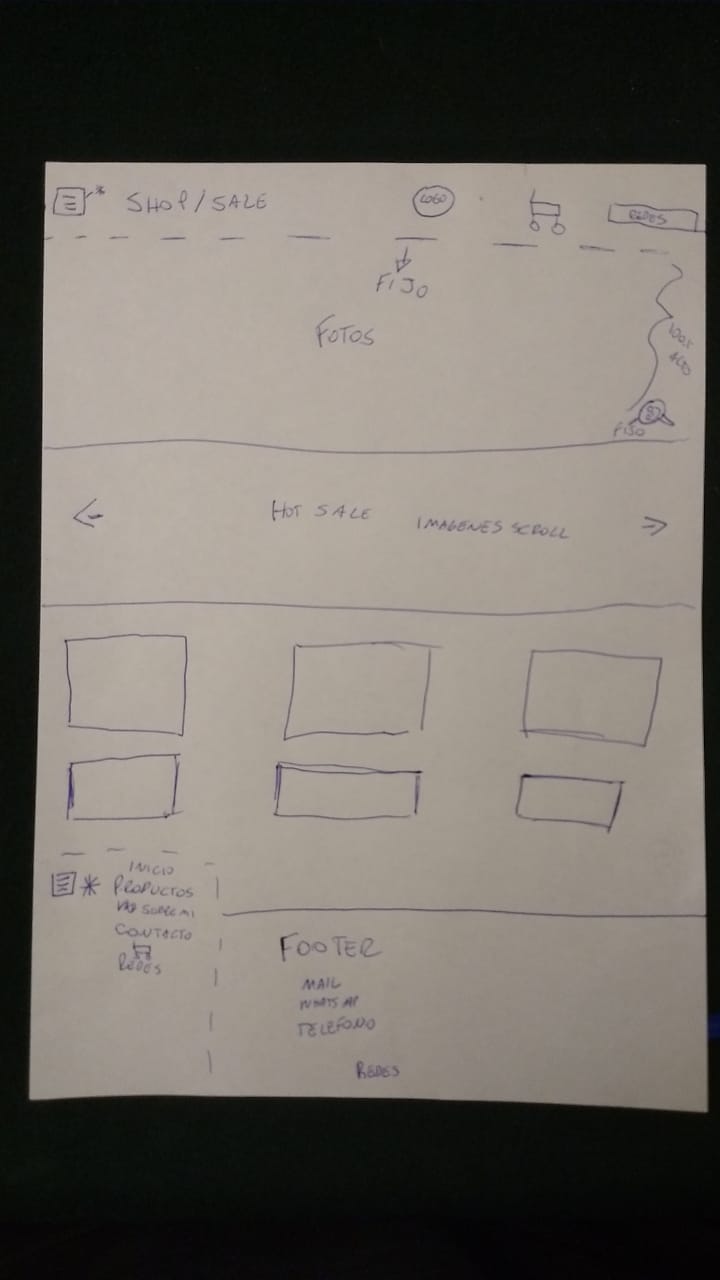 * SHOP/SALE LOGO REDES
FIJO
FOTOS
100%
ALTO
FIJO
HOT SALE IMAGENES SCROLL
INICIO
* PRODUCTOS
SOBRE MI
CONTACTO
REDES
FOOTER
MAIL
WHATSAP
TELEFONO
REDES